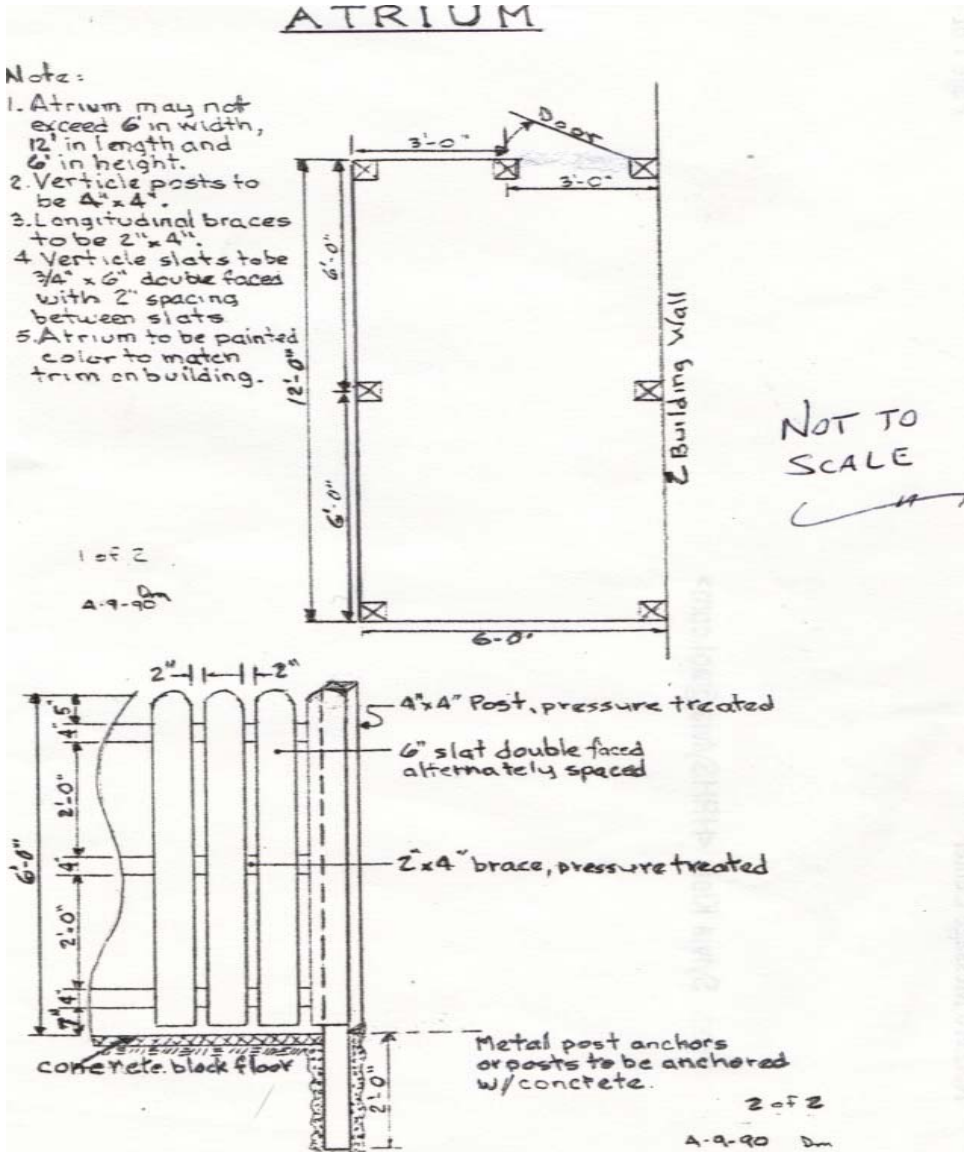 ATRIUM
Note:
1. Atrium may not
exceed 6' in width,
12' in length and
6' in height.
2. Verticle posts to
be 4"x4".
3. Longitudinal braces
to be 2"x4".
4 Verticle slats to be
3/4" x 6" double faced
with 2" spacing
between slats
5. Atrium to be painted
color to match
trim on building.
3'-0"
Door
3'-0"
6'-0"
12'-0"
6'-0"
Building Wall
6-0"
NOT TO
SCALE
1 of 2
A-9-90 Dm
2"
2"
5"
4"
2'-0"
4"
2'-0"
4"
7"
6'-0"
4"x4" Post, pressure treated
6" slat double faced
alternately spaced
2"x4" brace, pressure treated
concrete block floor
2'-0"
Metal post anchors
or posts to be anchored
w/concrete.
2 of 2
A-9-90 Dm